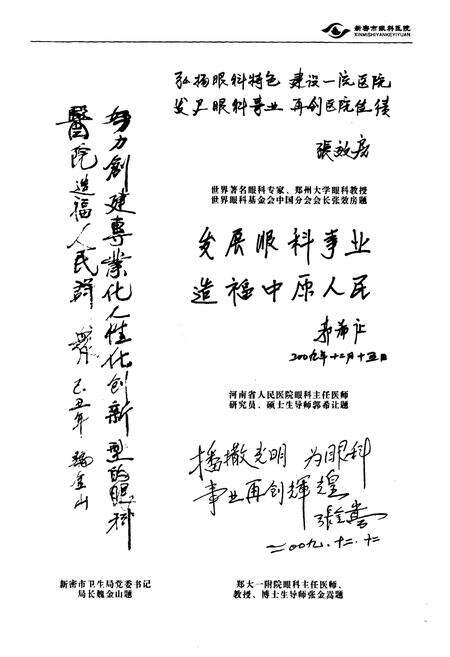 新密市眼科医院
XINMISHIYANKEYIYUAN
弘扬眼科特色 建设一流医院
发展眼科事业 再创医院佳绩
張效房
世界著名眼科专家、郑州大学眼科教授
世界眼科基金会中国分会会长张效房题
发展眼科事业
造福中原人民
郭希让
二00九年十二月十五日
河南省人民医院眼科主任医师
研究员、硕士生导师郭希让题
播撒光明 为眼科
事业再创輝煌
张金嵩
二00九.十二.十二
郑大一附院眼科主任医师、
教授、博士生导师张金嵩题
努力創建專業化人性化创新型的眼科
醫院造福人民群众 己丑年 魏金山
新密市卫生局党委书记
局长魏金山题